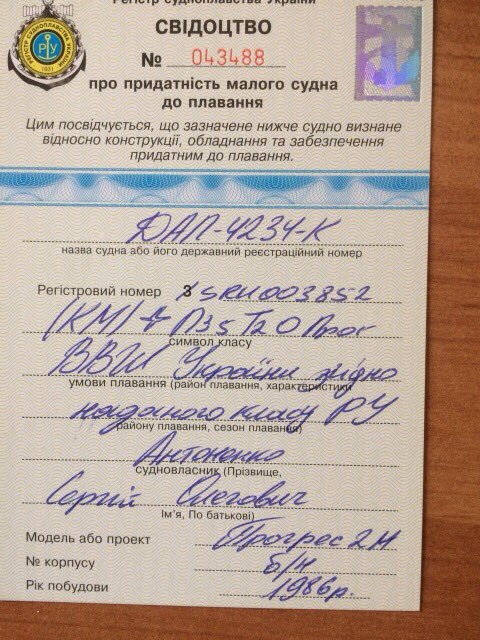 Регістр судноплавства України
СВІДОЦТВО
№ 043488
про придатність малого судна
до плавання
Цим посвідчується, що зазначене нижче судно визнане
відносно конструкції, обладнання та забезпечення
придатним до плавання.
ДАП-4234-К
назва судна або його державний реєстраційний номер
Регістровий номер 3
символ класу
ВВШ України згідно
умови плавання (район плавання, характеристики
наданого класу РУ
району плавання, сезон плавання)
Антоненко
судновласник (Прізвище,
Сергій Олегович
Ім'я, По батькові)
Модель або проект Прогрес 2М
№ корпусу б/н
Рік побудови 1986р.